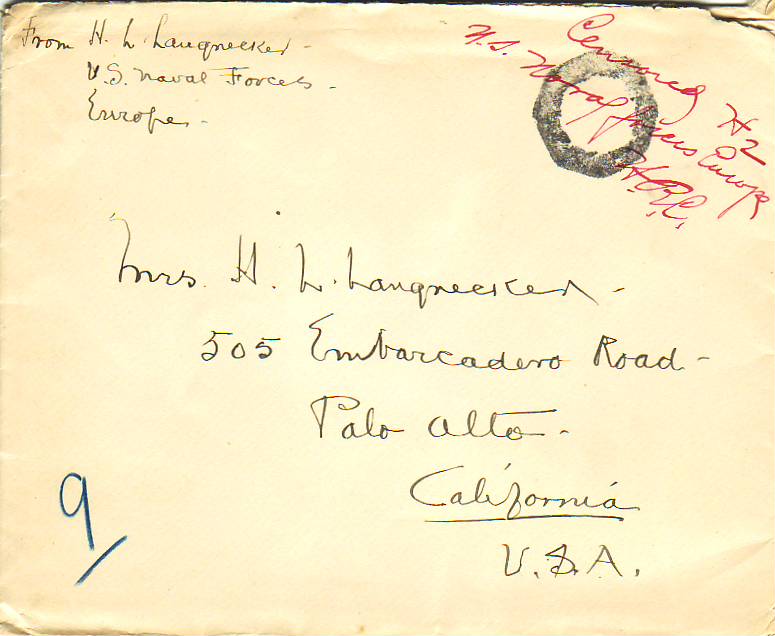 From H. L. Langnecker -
U.S. Naval Forces -
Europe -
Censored H2
U.S. Naval forces Europe
H.B.C.
Mrs. H. L. Langnecker -
505 Embarcadero Road -
Palo Alto -
California
U.S.A.
9